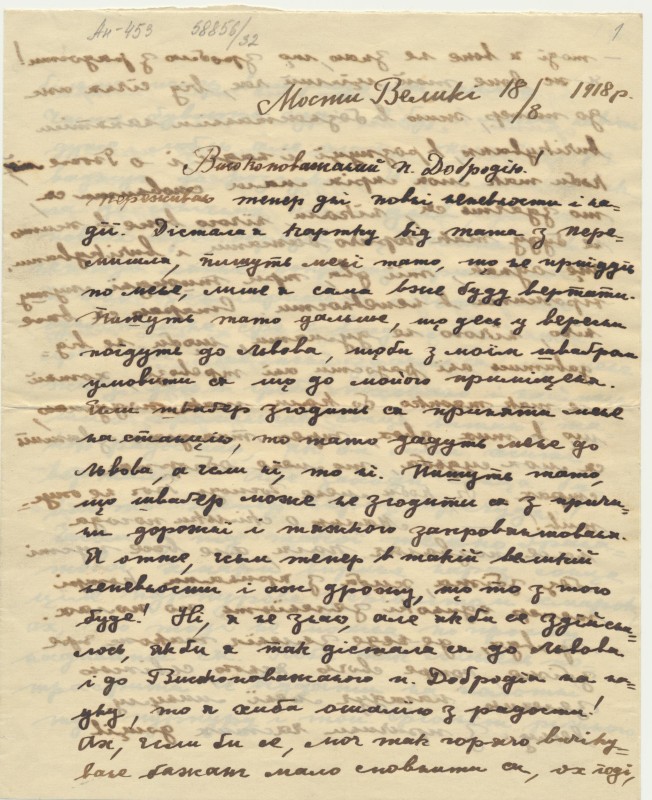 Ан-453 58856/32 1
Мости Великі 18/8 1918 р.
Високоповажаний п. Добродію!
Переживаю тепер дні повні непевности і на-
дії. Дістала я картку від тата з Пере-
мишля, пишуть мені тато, що не приїдуть
по мене, лише я сама вже буду вертати.
Пишуть тато дальше, що десь у вересни
поїдуть до Львова, щоби з моїм швагром
умовити ся що до мойого приміщеня.
Если швагер згодить ся приняти мене
на станцию, то тато дадуть мене до
Львова, а если ні, то ні. Пишуть тато,
що швагер може не згодити ся з причи-
ни дорожні і тяжкого запровіянтованя.
Я отже, єсьм тепер в такій великій
непевности і аж дрожу, що то з того
буде! Ні, я не знаю, але якби се здійсни-
лось, якби я так дістала ся до Львова
і до Високоповажаного п. Добродія на на-
уку, то я хиба ошалію з радости!
Ах, если би се, моє так горячо
бажанє мало сповнити ся, ох тоді,